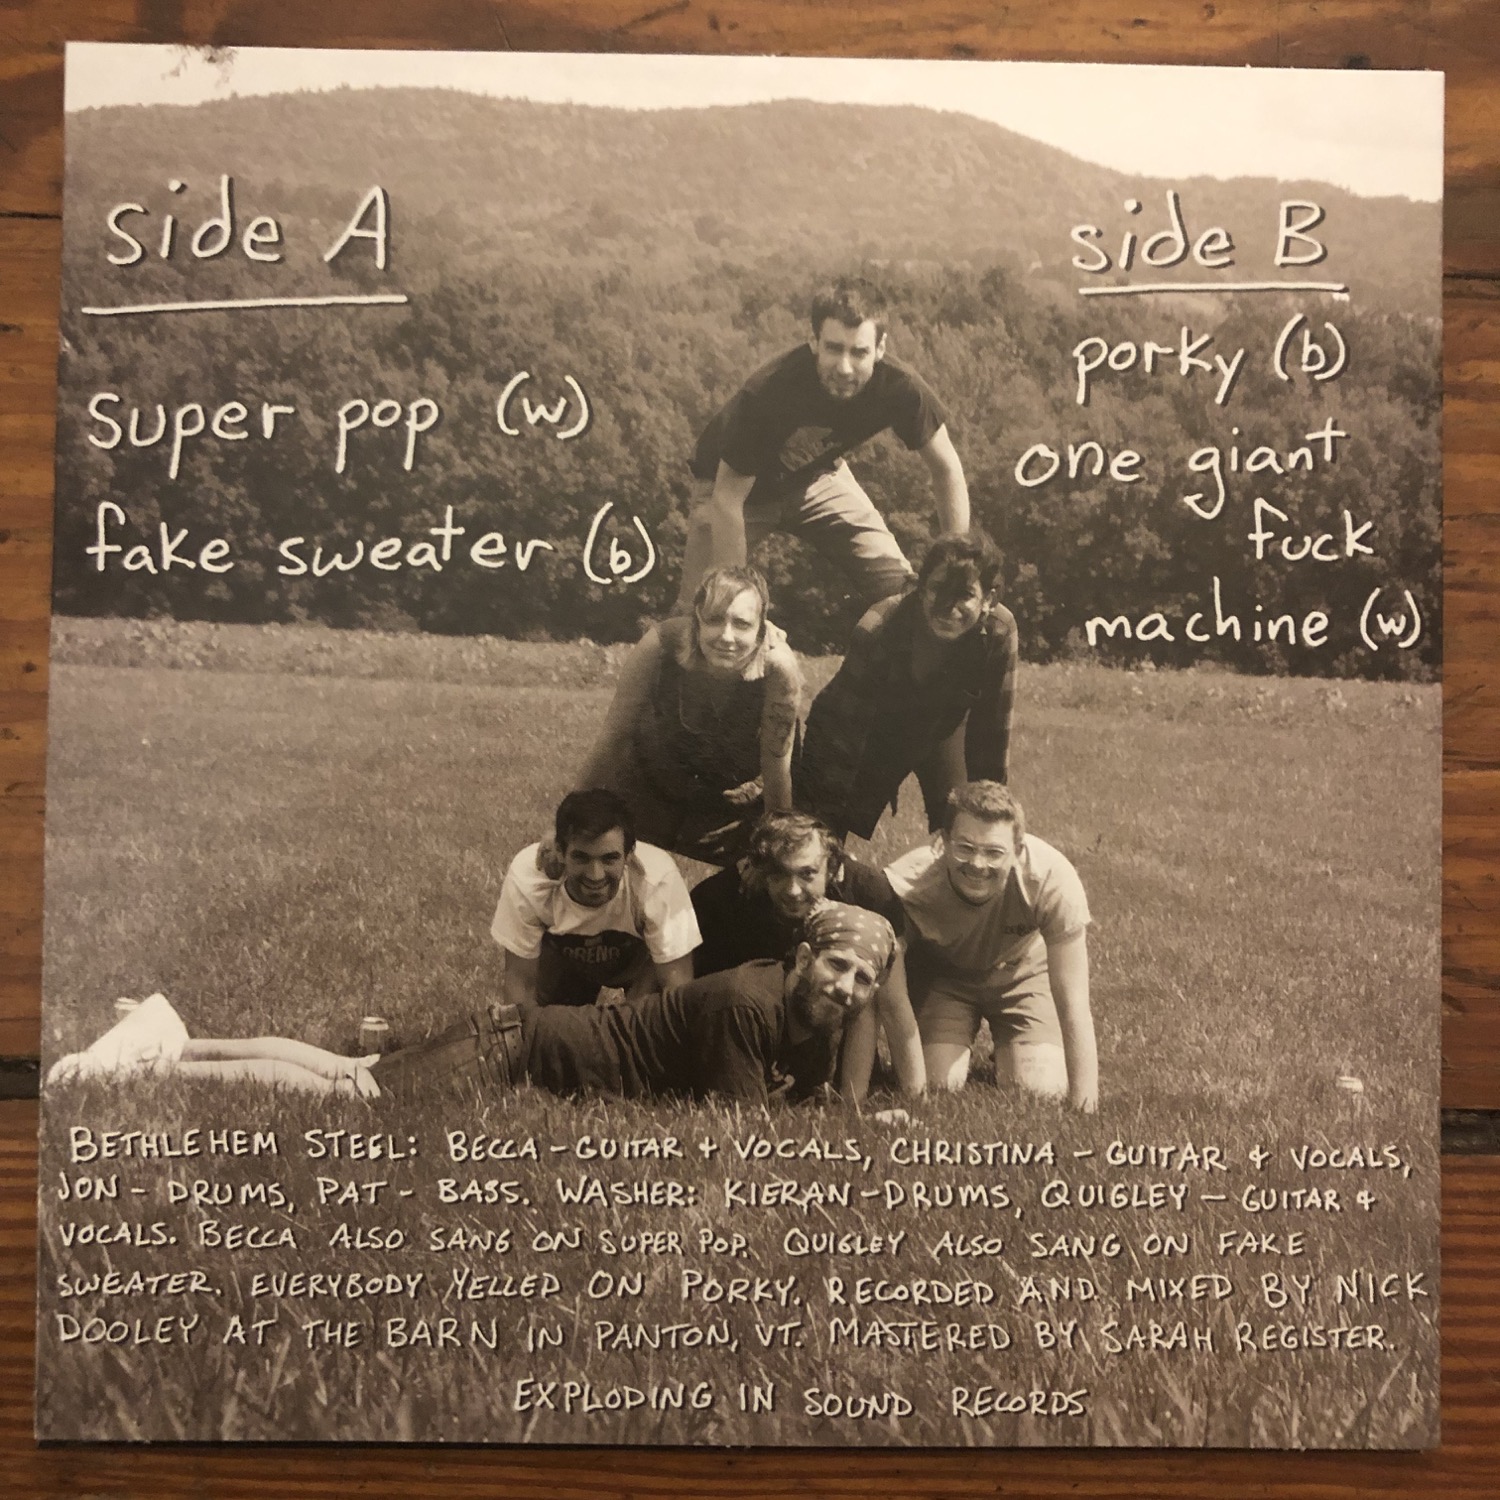 side A
super pop (w)
fake sweater (b)
side B
porky (b)
one giant
fuck
machine (w)
BETHLEHEM STEEL: BECCA - GUITAR + VOCALS, CHRISTINA - GUITAR + VOCALS,
JON - DRUMS, PAT - BASS. WASHER: KIERAN - DRUMS, QUIGLEY - GUITAR +
VOCALS. BECCA ALSO SANG ON SUPER POP. QUIGLEY ALSO SANG ON FAKE
SWEATER. EVERYBODY YELLED ON PORKY. RECORDED AND MIXED BY NICK
DOOLEY AT THE BARN IN PANTON, VT. MASTERED BY SARAH REGISTER.
EXPLODING IN SOUND RECORDS